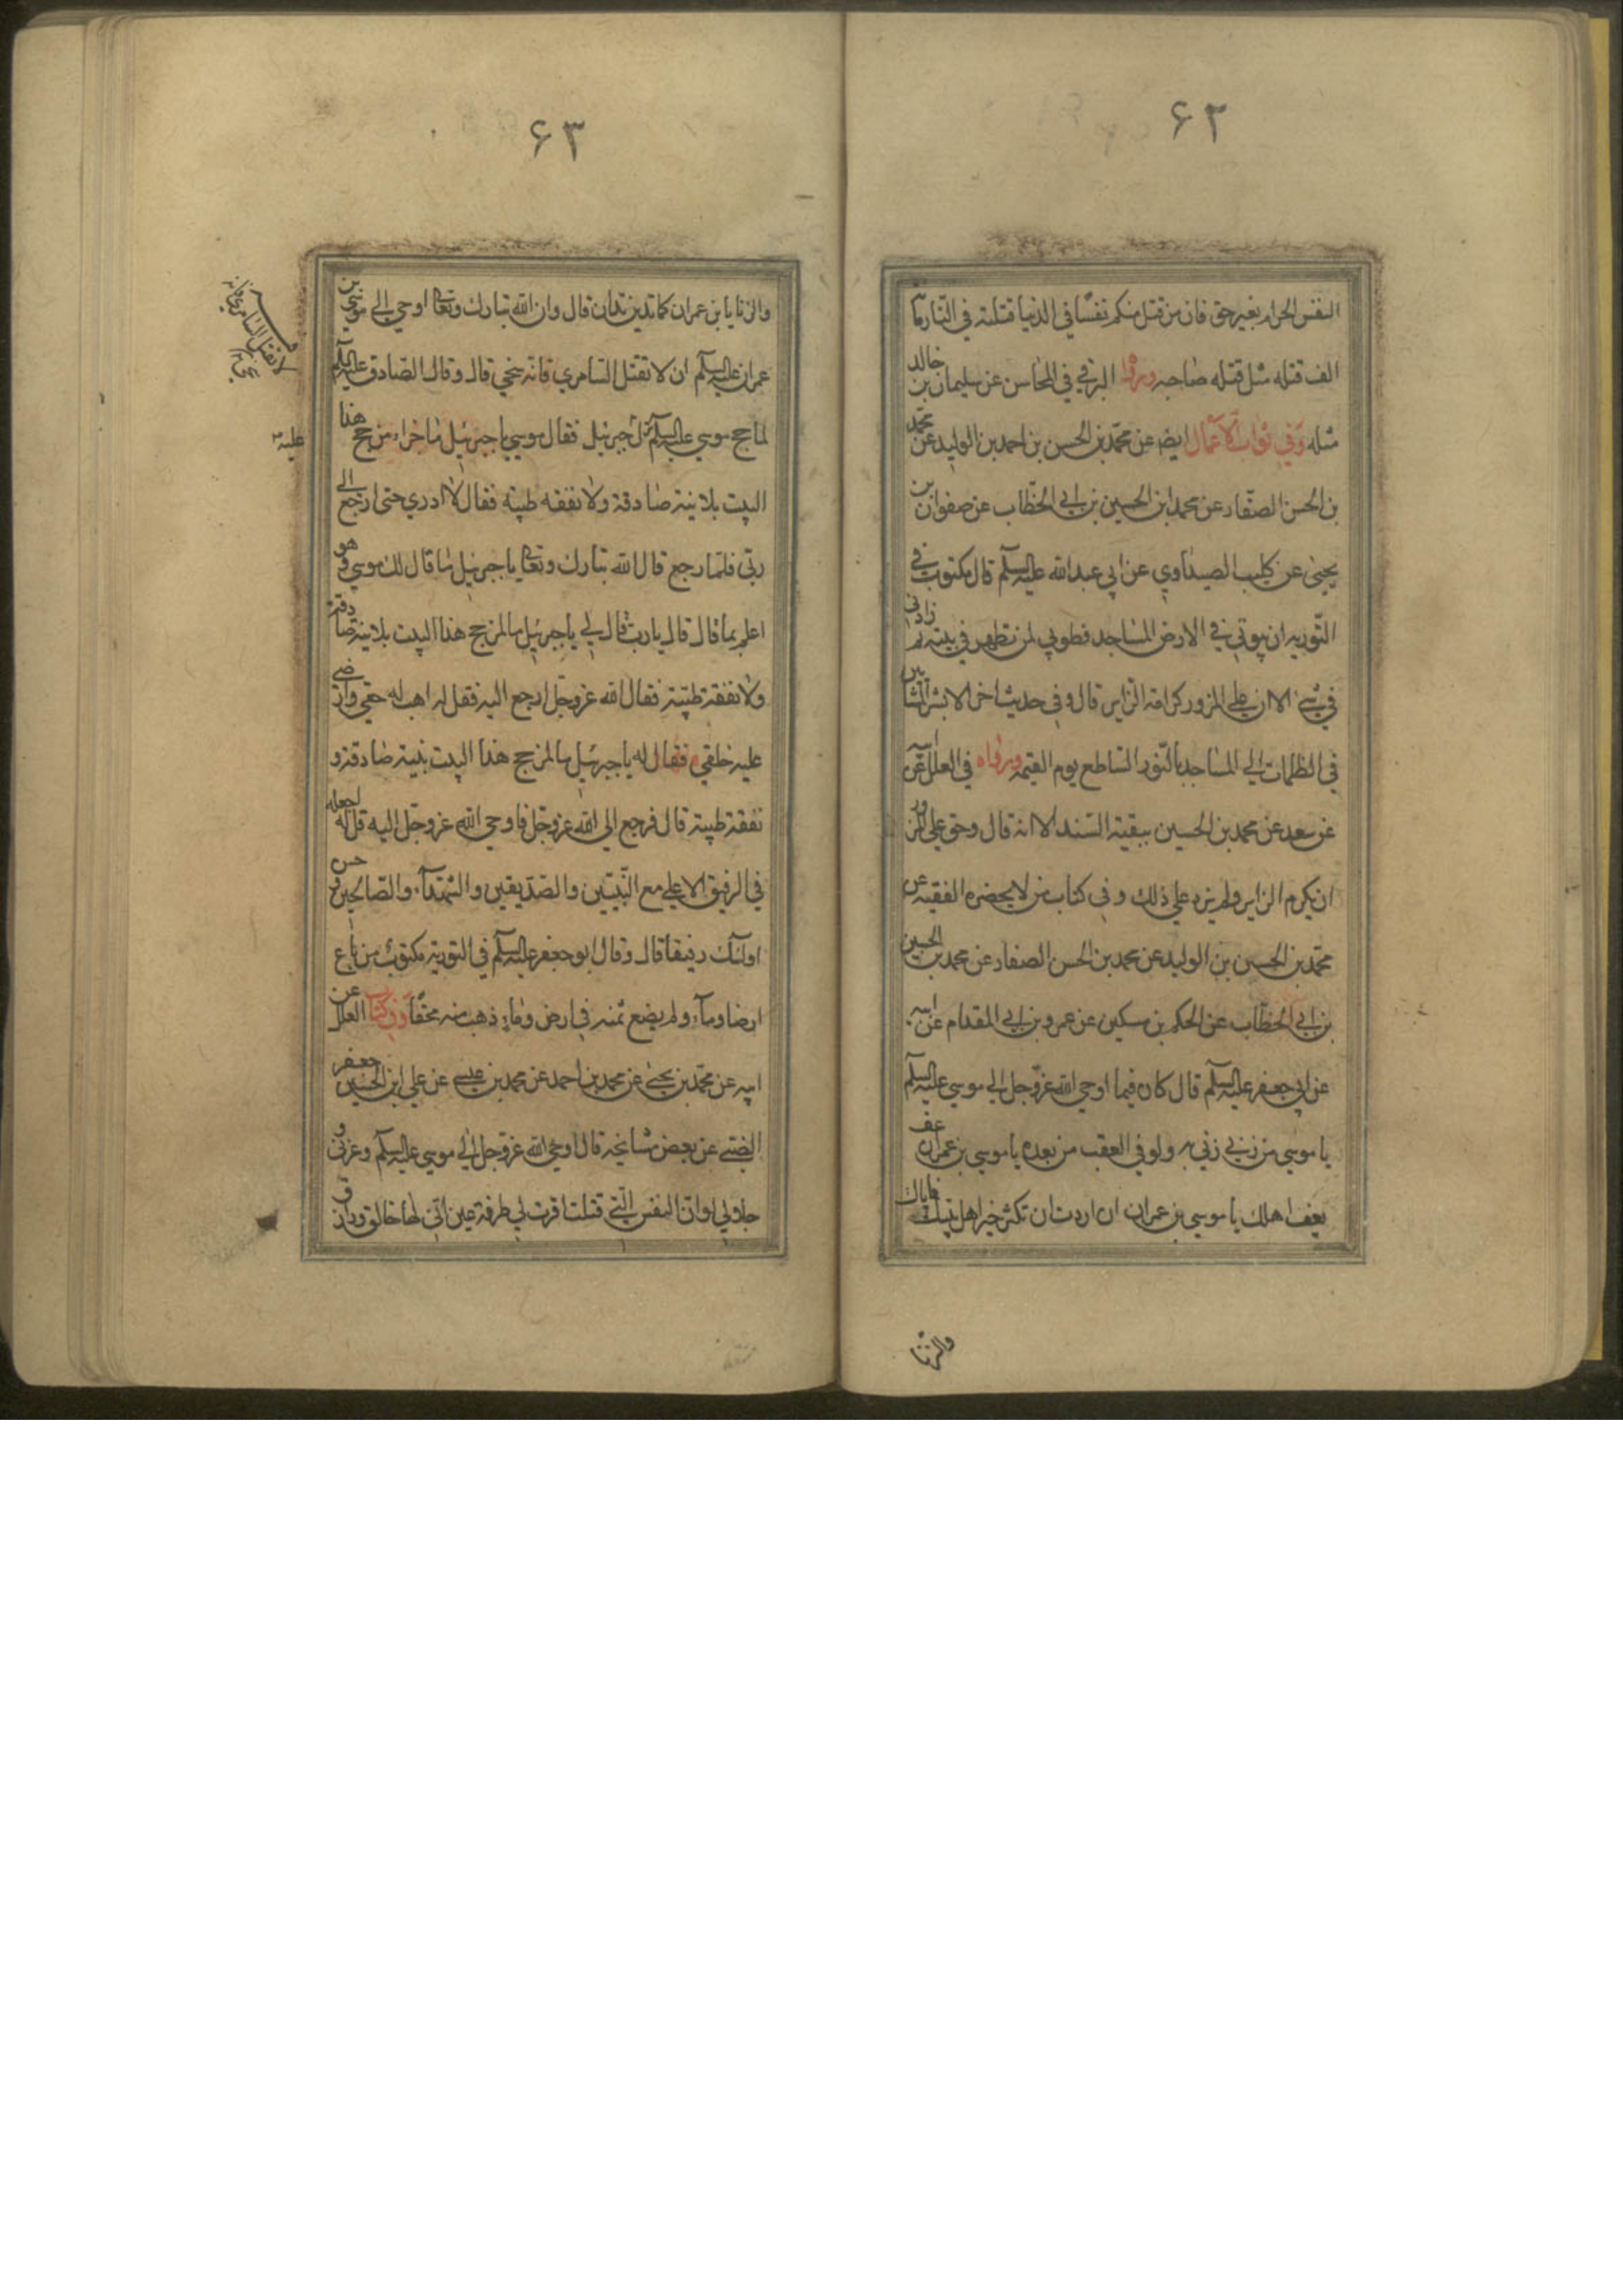 ۶۲
النفس الحرام بغير حق فان من قتل منكم نفسا في الدنيا قتلته في النار مائة
الف قتله مثل قتله صاحبه ورواه البرقي في المحاسن عن سليمان بن خالد
مثله وفي ثواب الاعمال ايضا عن محمد بن الحسن بن احمد بن الوليد عن محمد
بن الحسن الصفار عن محمد ابن الحسين بن ابي الخطاب عن صفوان بن
يحيى عن كليب الصيداوي عن ابي عبد الله عليه السلم قال مكتوب في
التورية ان بيوتي في الارض المساجد فطوبي لمن تطهر في بيته ثم زارني
في بيتي الا ان علي المزور كرامة الزاير قال وفي حديث اخر الا بشر المشائين
في الظلمات الي المساجد بالنور الساطع يوم القيمة ورواه في العلل عن ابيه
عن سعد عن محمد بن الحسين ببقية السند الا انه قال وحق علي المزور
ان يكرم الزاير ولم يزد علي ذلك وفي كتاب من لا يحضره الفقيه عن
محمد بن الحسين بن الوليد عن محمد بن الحسن الصفار عن محمد بن الحسين
بن ابي الخطاب عن الحكم بن مسكين عن عمرو بن ابي المقدام عن ابيه
عن ابي جعفر عليه السلم قال كان فيما اوحي الله عز وجل الي موسي عليه السلم
يا موسي من زني زني به ولو في العقب من بعده يا موسي بن عمران عف
يعف اهلك يا موسي بن عمران ان اردت ان تكثر خير اهل بيتك فاياك
والزنا
۶۳
والزنا يا بن عمران كما تدين تدان قال وان الله تبارك وتعالى اوحي الي موسي بن
عمران عليه السلم ان لا تقتل السامري فانه سخي قال وقال الصادق عليه السلم
لما حج موسي عليه السلم نزل جبرئيل فقال موسي يا جبرئيل ما جزاء من حج هذا
البيت بلا نية صادقة ولا نفقه طيبة فقال لا ادري حتى ارجع الي
ربي فلما رجع قال الله تبارك وتعالى يا جبرئيل ما قال لك موسي وهو
اعلم بما قال قال يا رب قال لي يا جبرئيل ما لمن حج هذا البيت بلا نية صادقة
ولا نفقة طيبة فقال الله عز وجل ارجع اليه فقل له اهب له حقي وارضي
عليه خلقي فقال له يا جبرئيل ما لمن حج هذا البيت بنية صادقة و
نفقة طيبة قال فرجع الي الله عز وجل فاوحي الله عز وجل اليه قل له اجعله
في الرفيق الاعلي مع النبيين والصديقين والشهداء والصالحين وحسن
اولئك رفيقا قال وقال ابو جعفر عليه السلم في التورية مكتوب من باع
ارضا وماء ولم يضع ثمنه في ارض وماء ذهب ثمنه محقا وفي كتاب العلل عن
ابيه عن محمد بن يحيى عن محمد بن احمد عن محمد بن عيسي عن علي ابن الحسين جعفر
الضبي عن بعض مشايخه قال اوحي الله عز وجل الي موسي عليه السلم وعزتي و
جلالي لو ان النفس التي قتلت اقرت لي طرفة عين اني لها خالق ورازق
لا تقتل السامري فانه
سخي
عليه